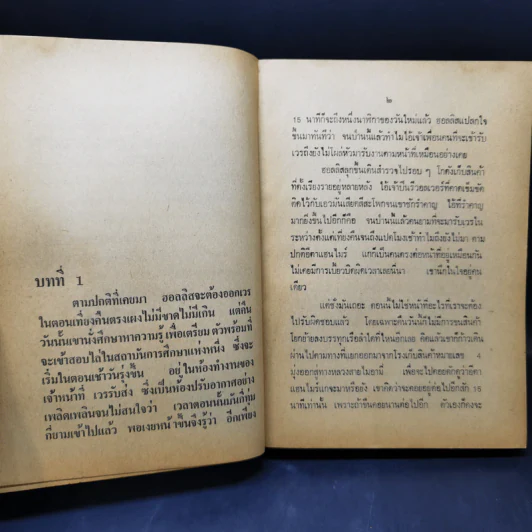 บทที่ 1
ตามปกติที่เคยมา ฮอลลิสจะต้องออกเวร
ในตอนเที่ยงคืนตรงเผงไม่มีขาดไม่มีเกิน แต่คืน
วันนั้นเขานั่งศึกษาหาความรู้ เพื่อเตรียมตัวพร้อมที่
จะเข้าสอบไล่ในสถาบันการศึกษาแห่งหนึ่ง ซึ่งจะ
เริ่มในตอนเช้าวันรุ่งขึ้น อยู่ในห้องทำงานของ
เจ้าหน้าที่ เวรรับส่ง ซึ่งเป็นห้องปรับอากาศอย่าง
เพลิดเพลินจนไม่สนใจว่า เวลาตอนนั้นมันกี่ทุ่ม
กี่ยามเข้าไปแล้ว พอเงยหน้าขึ้นจึงรู้ว่า อีกเพียง
๒
15 นาทีก็จะถึงหนึ่งนาฬิกาของวันใหม่แล้ว ฮอลลิสแปลกใจ
ขึ้นมาทันทีว่า จนป่านนี้แล้วทำไมไอ้เจ้าเพื่อนคนที่จะเข้ารับ
เวรถึงยังไม่โผล่หัวมารับงานตามหน้าที่เหมือนอย่างเคย
ฮอลลิสลุกขึ้นเดินสำรวจไปรอบ ๆ โกดังเก็บสินค้า
ที่ตั้งเรียงรายอยู่หลายหลัง ไอ้เจ้าปืนรีวอลเวอร์ที่คาดเข็มขัด
ติดไว้กับเอวมันเสียดสีสะโพกจนเขาชักรำคาญ ไอ้ที่รำคาญ
มากยิ่งขึ้นไปอีกก็คือ จนป่านนี้แล้วคนยามที่จะมารับเวรใน
ระหว่างตั้งแต่เที่ยงคืนจนถึงแปดโมงเช้าทำไมถึงยังไม่มา ตาม
ปกติอีตาแฮนไมร์ แกก็เป็นคนตรงต่อหน้าที่อยู่เหมือนกัน
ไม่เคยมีการเบี้ยวบิดผิดเวลาเลยนี่นา เขานึกในใจอยู่คน
เดียว
แต่ช่างมันเถอะ ตอนนี้ไม่ใช่หน้าที่อะไรที่เราจะต้อง
ไปรับผิดชอบแล้ว โดยเฉพาะคืนวันนี้ก็ไม่มีการขนสินค้า
โยกย้ายลงบรรทุกเรือลำใดที่ไหนอีกเลย คิดแล้วเขาก็ก้าวเดิน
ผ่านไปตามทางที่แยกออกมาจากโรงเก็บสินค้าหมายเลข 4
มุ่งออกสู่ทางหลวงสายไมอามี่ เพื่อจะไปคอยดักดูว่าอีตา
แฮนไมร์แกจะมาหรือยัง เขาคิดว่าจะคอยอยู่ต่อไปอีกสัก 15
นาทีเท่านั้น เพราะถ้าขืนคอยนานต่อไปอีก ตัวเองก็คงจะ